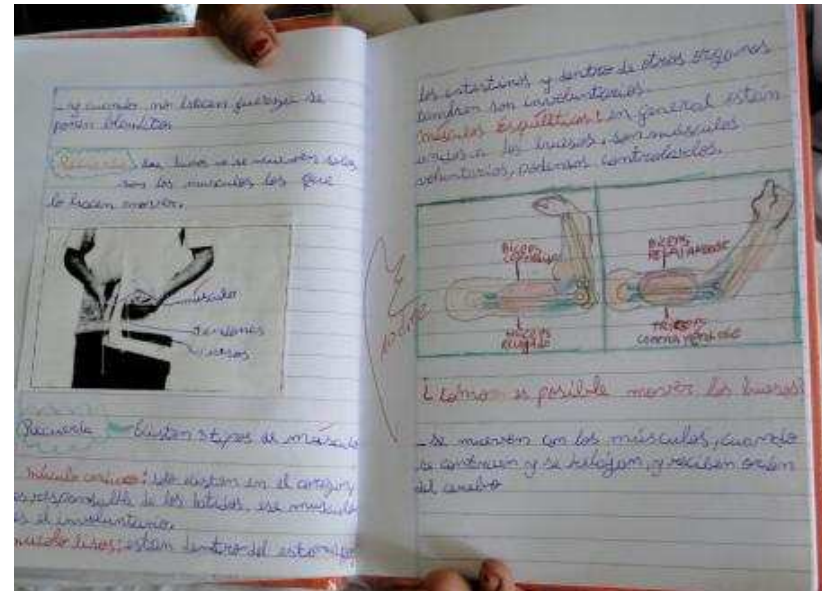 - y cuando no hacen fuerza se
ponen blanditos
Recuerda los huesos no se mueven solos
son los musculos los que
lo hacen mover.
músculo
tendones
huesos
Recuerda Existen 3 tipos de músculo
músculo cardíaco: solo existen en el corazón
es responsable de los latidos, ese musculo
es el involuntario.
musculo lisos: estan dentro del estomago
los intestinos y dentro de otros órganos
tambien son involuntarios.
músculos esqueléticos: en general estan
unidos a los huesos, son músculos
voluntarios, podemos controlarlos.
BÍCEPS
BÍCEPS
RELAJANDOSE
RELAJADO
TRÍCEPS
CONTRAYENDOSE
¿Cómo es posible mover los huesos?
- Se mueven con los músculos, cuando
se contraen y se relajan, y reciben orden
del cerebro